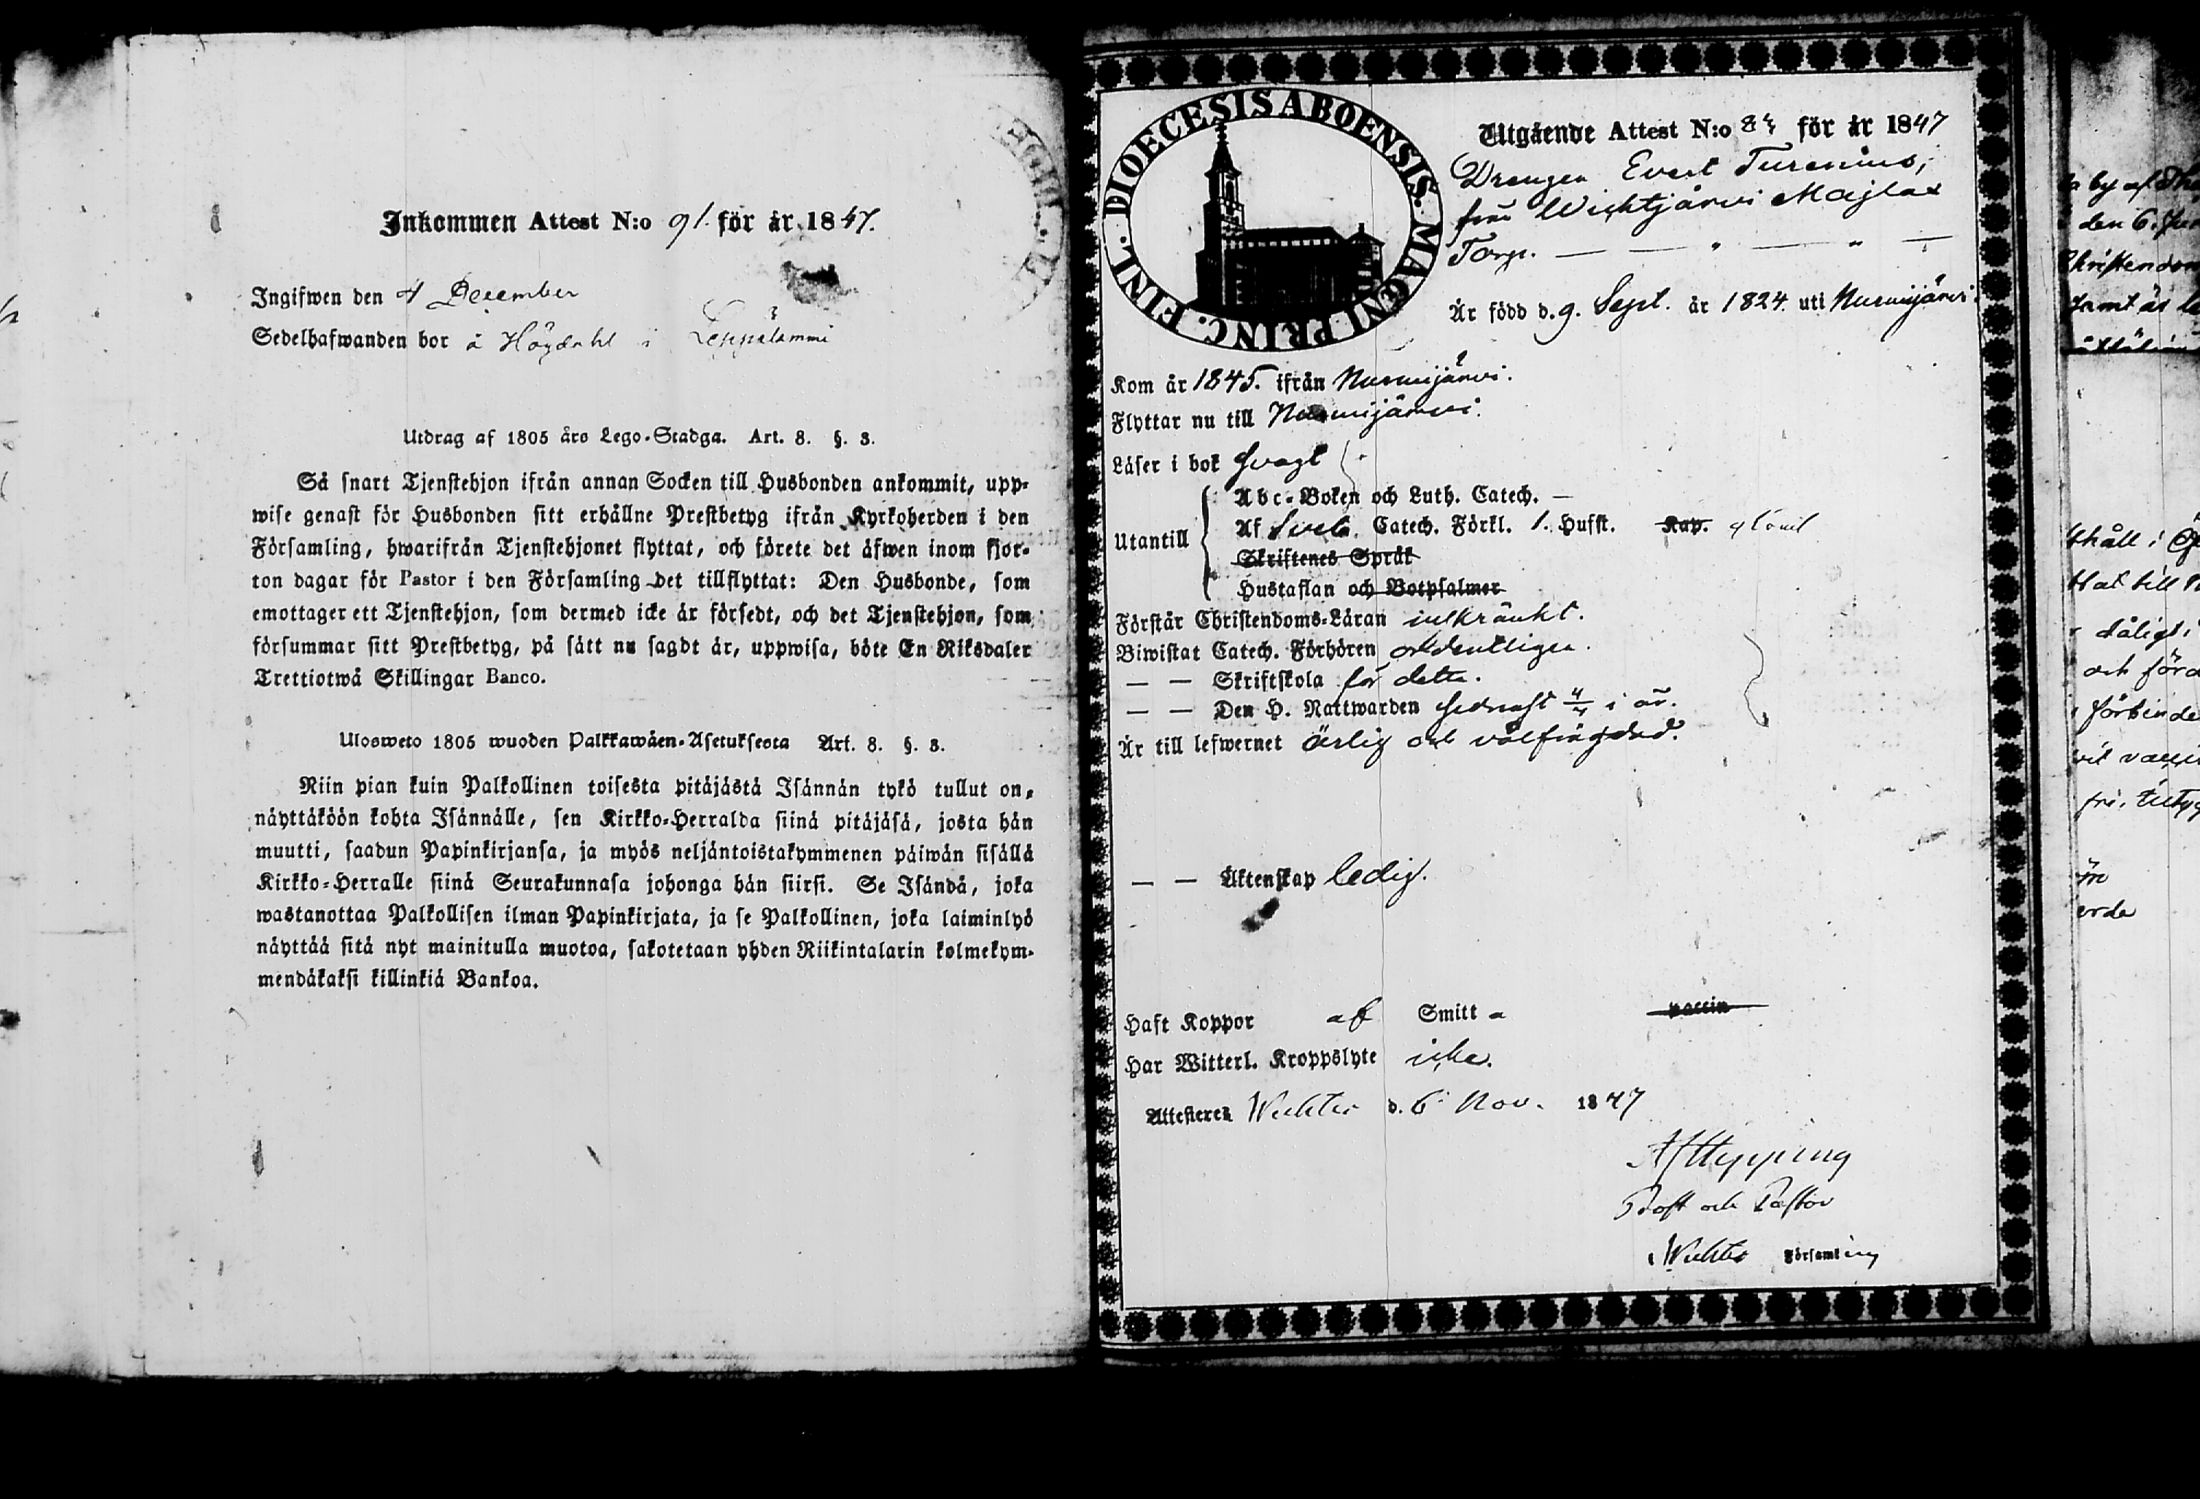 Inkommen Attest N:o 91. för år 1847.
Ingifwen den 4 December
Sedelhafwanden bor å Högdahl i Leppälammi
Utdrag af 1805 års Lego-Stadga. Art. 8. §. 3.
Så snart Tjenstehjon ifrån annan Socken till Husbonden ankommit, upp-
wise genast för Husbonden sitt erhållne Prestbetyg ifrån Kyrkoherden i den
Församling, hwarifrån Tjenstehjonet flyttat, och förete det äfwen inom fjor-
ton dagar för Pastor i den Församling det tillflyttat: Den Husbonde, som
emottager ett Tjenstehjon, som dermed icke är försedt, och det Tjenstehjon, som
försummar sitt Prestbetyg, på sätt nu sagdt är, uppwisa, böte En Riksdaler
Trettiotwå Skillingar Banco.
Ulosweto 1805 wuoden Palkkawäen-Asetuksesta Art. 8. §. 3.
Niin pian kuin Palkollinen toisesta pitäjästä Isännän tykö tullut on,
näyttäköön kohta Isännälle, sen Kirkko-Herralda siinä pitäjäsä, josta hän
muutti, saadun Papinkirjansa, ja myös neljäntoistakymmenen päiwän sisällä
Kirkko-Herralle siinä Seurakunnasa johonga hän siirsi. Se Isändä, joka
wastanottaa Palkollisen ilman Papinkirjata, ja se Palkollinen, joka laiminlyö
näyttää sitä nyt mainitulla muotoa, sakotetaan yhden Riikintalarin kolmekym-
mendäkaksi killinkiä Bankoa.
DIOECESIS ABOENSIS. MAGNI PRINC. FINL.
Utgående Attest N:o för år 1847
Drengen Evert Turenius,
från Wichtjärvi Majlax
Torp. — — " — " —
Är född d. 9. Sept. år 1824. uti Nurmijärvi.
Kom år 1845. ifrån Nurmijärvi.
Flyttar nu till Nurmijärvi.
Läser i bok svagt
Utantill
Abc-Boken och Luth. Catech. —
Af Sveb. Catech. Förkl. 1. Hufst. Kap.
Skriftenes Språk
Hustaflan och Botpsalmer
Förstår Christendoms-Läran inskränkt.
Biwistat Catech. Förhören ordentligen.
— — Skriftskola för detta.
— — Den H. Nattwarden sednast i år.
Är till lefwernet ärlig och välfrägdad.
— — Äktenskap ledig.
Haft Koppor af Smitt a vaccin
Har Witterl. Kroppslyte icke.
Attesterer Wichtis d. 6 Nov. 1847
Hypping
Prost och Pastor
i Wichtis Församling